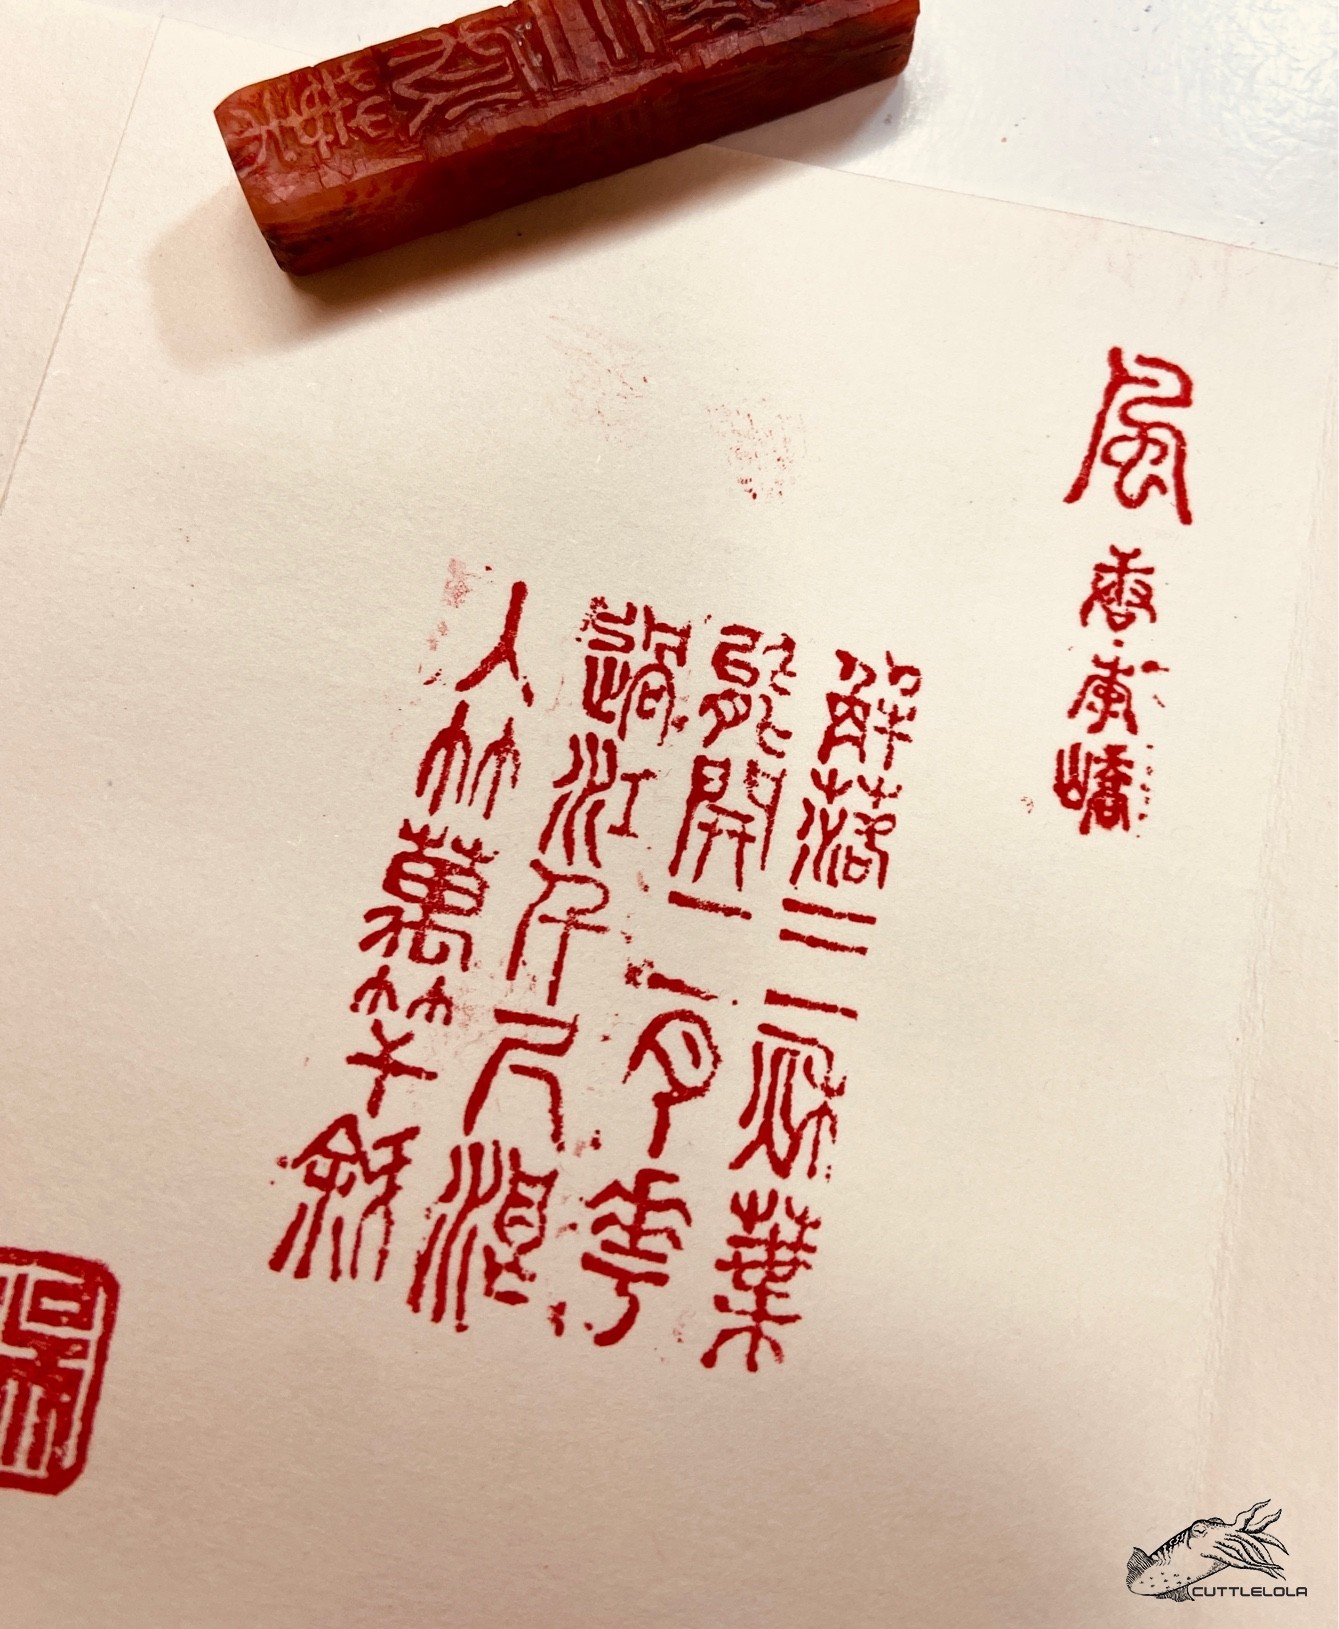 風
唐·李嶠
解落三秋葉
能開二月花
過江千尺浪
入竹萬竿斜
CUTTLELOLA